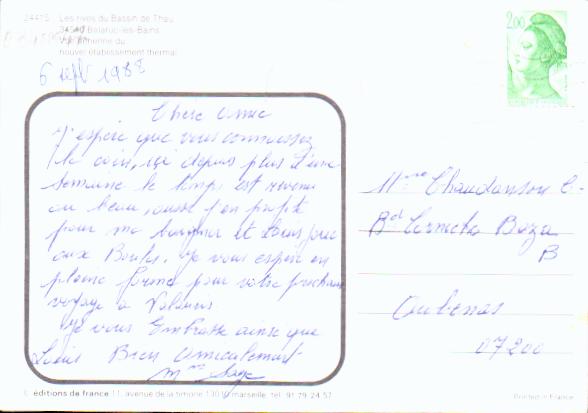 24415 Les rives du Bassin de Thau
34540 Balaruc-les-Bains
Vue aérienne du
nouvel établissement thermal
6 sept 1988
2,00
Chère Amie
J'espère que vous connaissez
le coin, ici depuis plus d'une
semaine le temps est revenu
au beau, aussi j'en profite
pour me baigner et Louis joue
aux Boules. Je vous espère en
pleine forme pour votre prochain
voyage à
Je vous Embrasse ainsi que
Louis Bien Amicalement
Mme
Mme
Bd
B
Aubenas
07200
éditions de france 11, avenue de la timone 13010 marseille. tel. 91 79 24 57
Printed in France